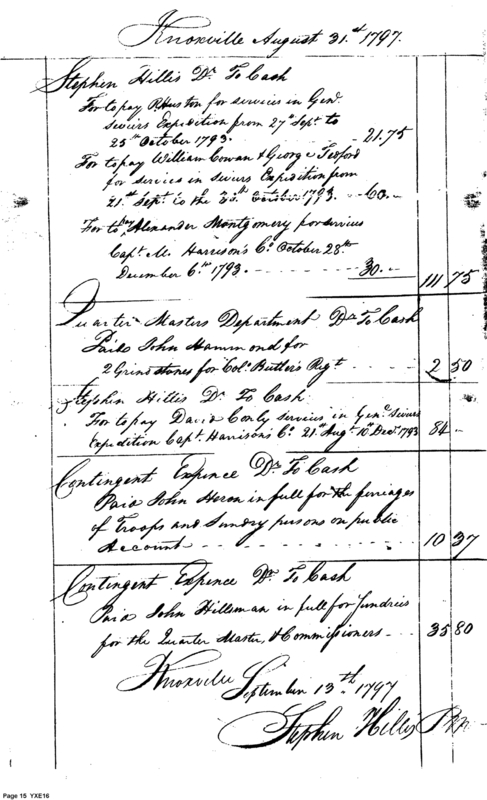 Knoxville August 31.st 1797.
Stephen Hillis Dr. To Cash
For to pay R Huston for services in Genl.
Seviers Expedition from 27th Sept. to
25th October 1793. - 21.75
For to pay William Cowan & George
for services in Seviers Expedition from
21st Sept. to the October 1793 - 60.-
For to Pay Alexander Montgomery for services
Capt. M. Harrison's Co. October 28th
December 6th 1793. - - - - 30.- 111 75
Quarter Masters Department Dr. To Cash
Paid John Hammond for
2 Grindstones for Colo. Butler's Regt. 2 50
Stephen Hillis Dr. To Cash
For to pay David Conly services in Genl. Seviers
Expedition Capt. Harrison's Co. 21st Augt. 10th Decr. 1793 84 -
Contingent Expence Dr. To Cash
Paid John in full for the ferriages
of Troops and Sundry persons on public
Account - - - - 10 37
Contingent Expence Dr. To Cash
Paid John Hilleman in full for Sundries
for the Quarter Master, & Commissioners - - 35 80
Knoxville September 13th. 1797
Stephen Hillis
Page 15 YXE16